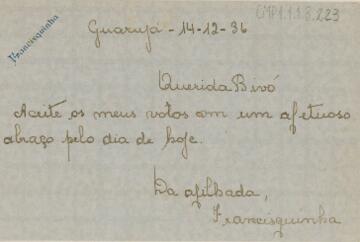 CMP1.1.1.8.223
Francisquinha
Guarujá - 14-12-36
Querida Bivó
Aceite os meus votos com um afetuoso
abraço pelo dia de hoje.
Da afilhada,
Francisquinha